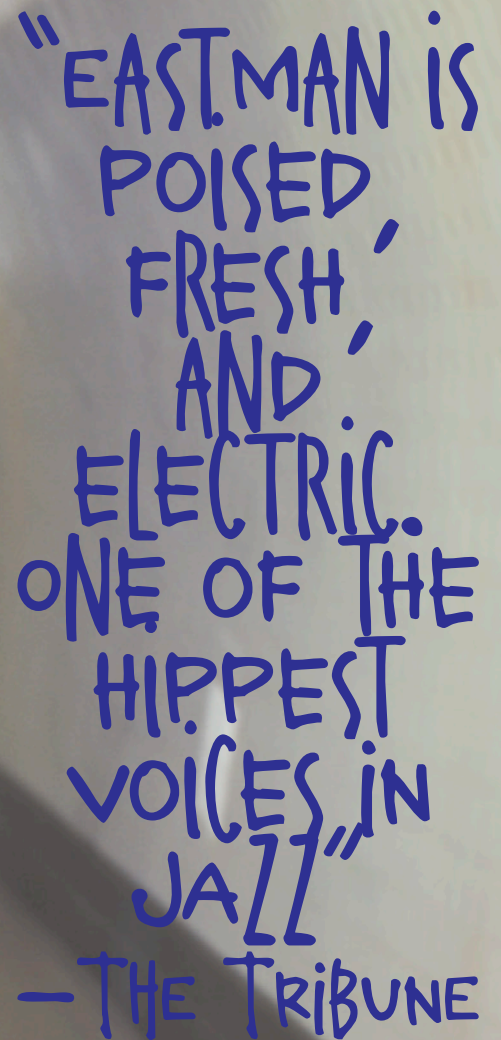 "EASTMAN iS
POISED,
FRESH,
AND
ELECTRiC.
ONE OF THE
HIPPEST
VOiCES iN
JAZZ"
–THE TRiBUNE